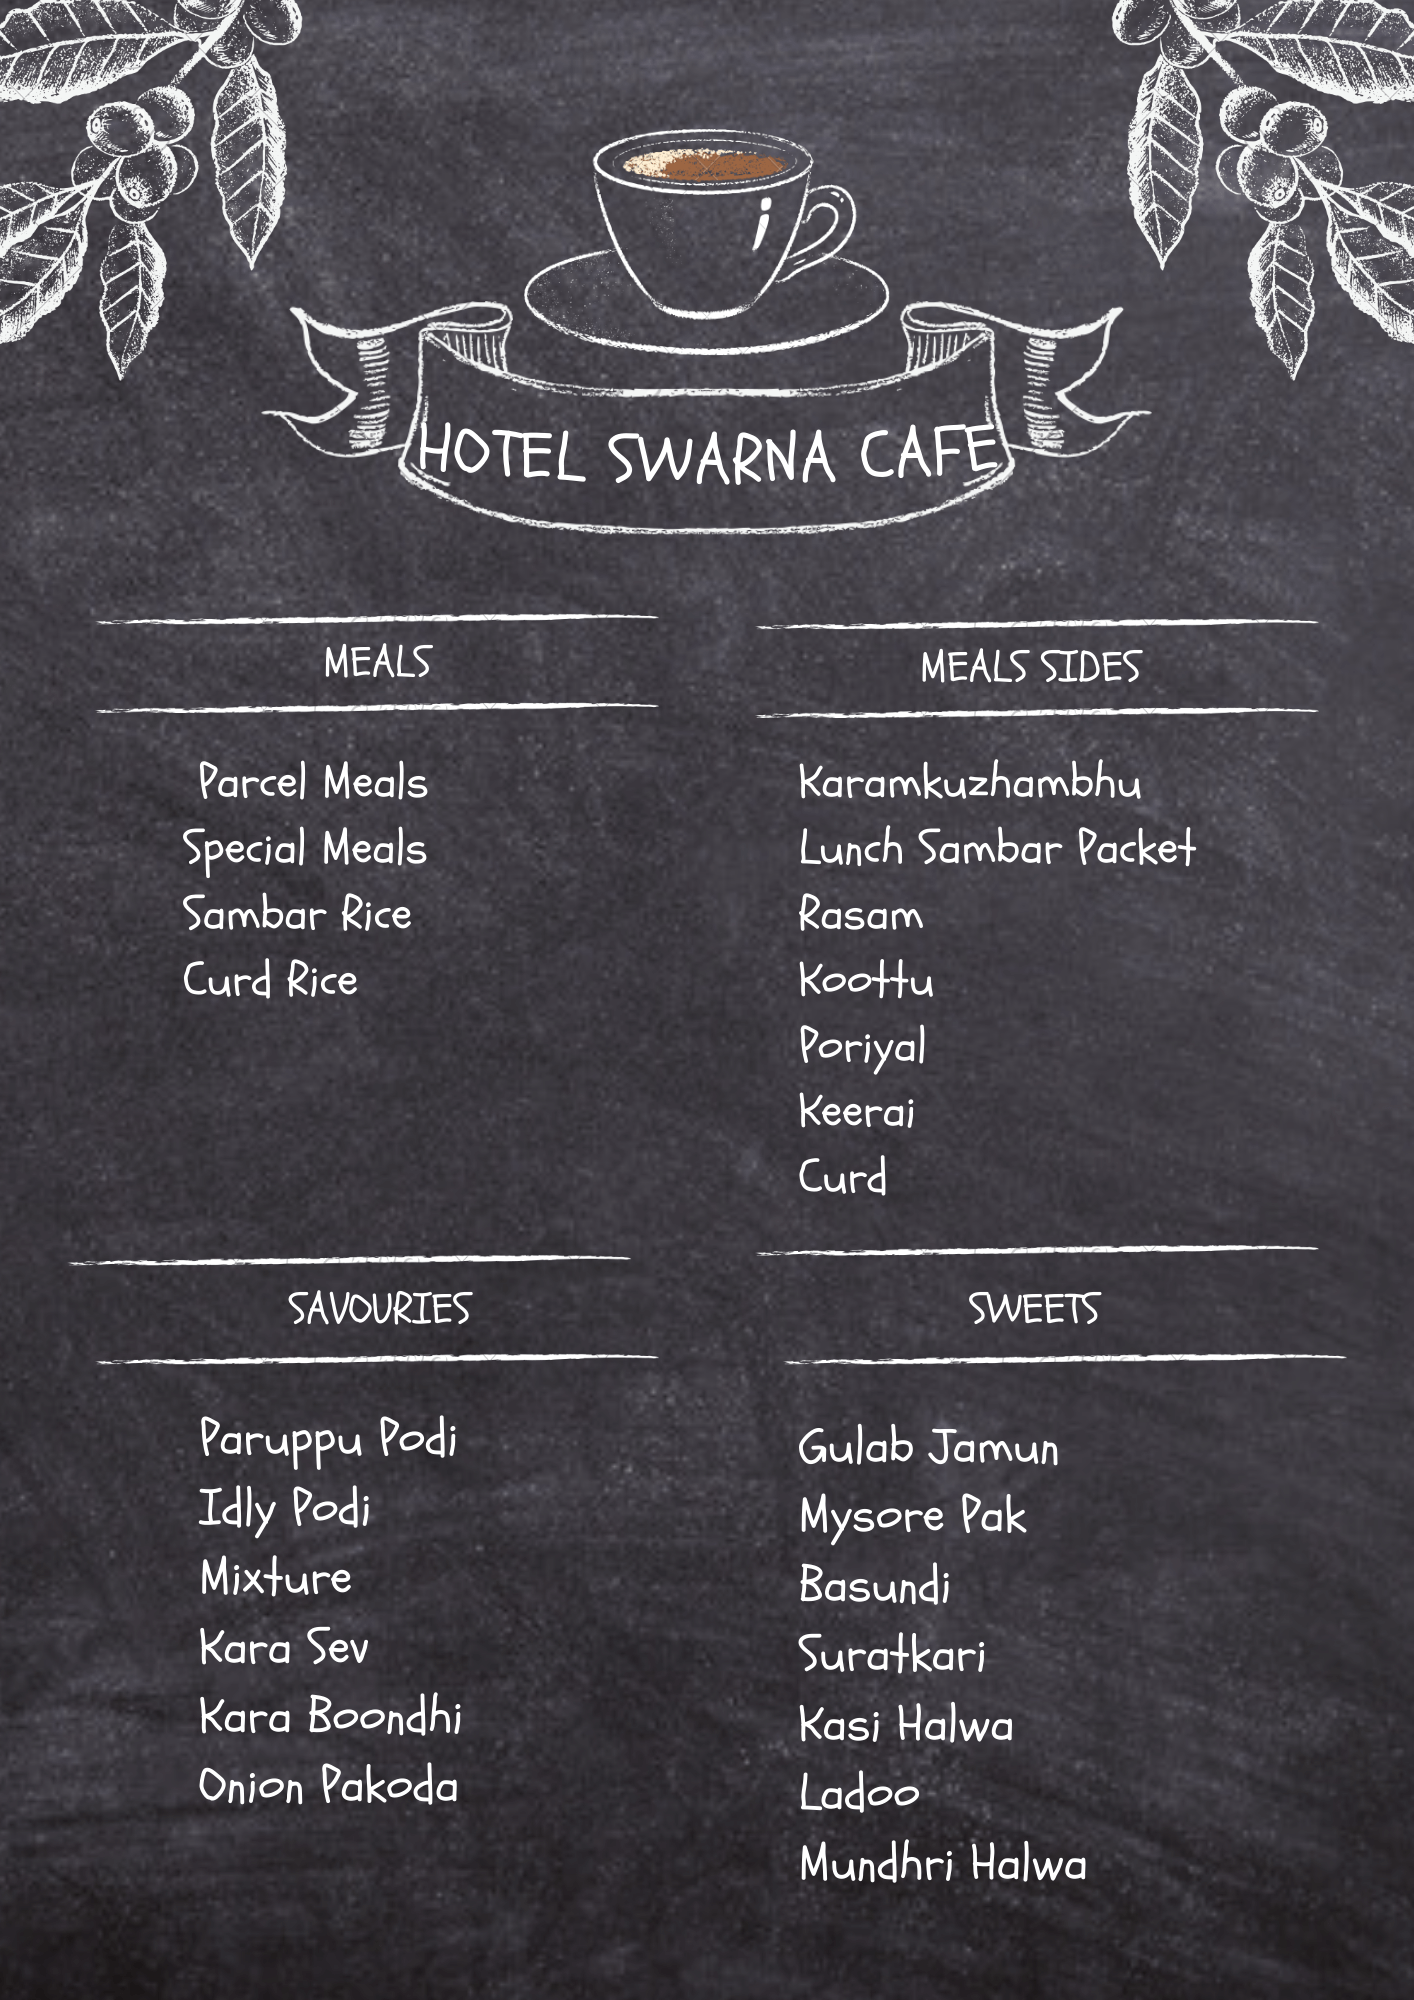 HOTEL SWARNA CAFE
MEALS
Parcel Meals
Special Meals
Sambar Rice
Curd Rice
MEALS SIDES
Karamkuzhambhu
Lunch Sambar Packet
Rasam
Koottu
Poriyal
Keerai
Curd
SAVOURIES
Paruppu Podi
Idly Podi
Mixture
Kara Sev
Kara Boondhi
Onion Pakoda
SWEETS
Gulab Jamun
Mysore Pak
Basundi
Suratkari
Kasi Halwa
Ladoo
Mundhri Halwa